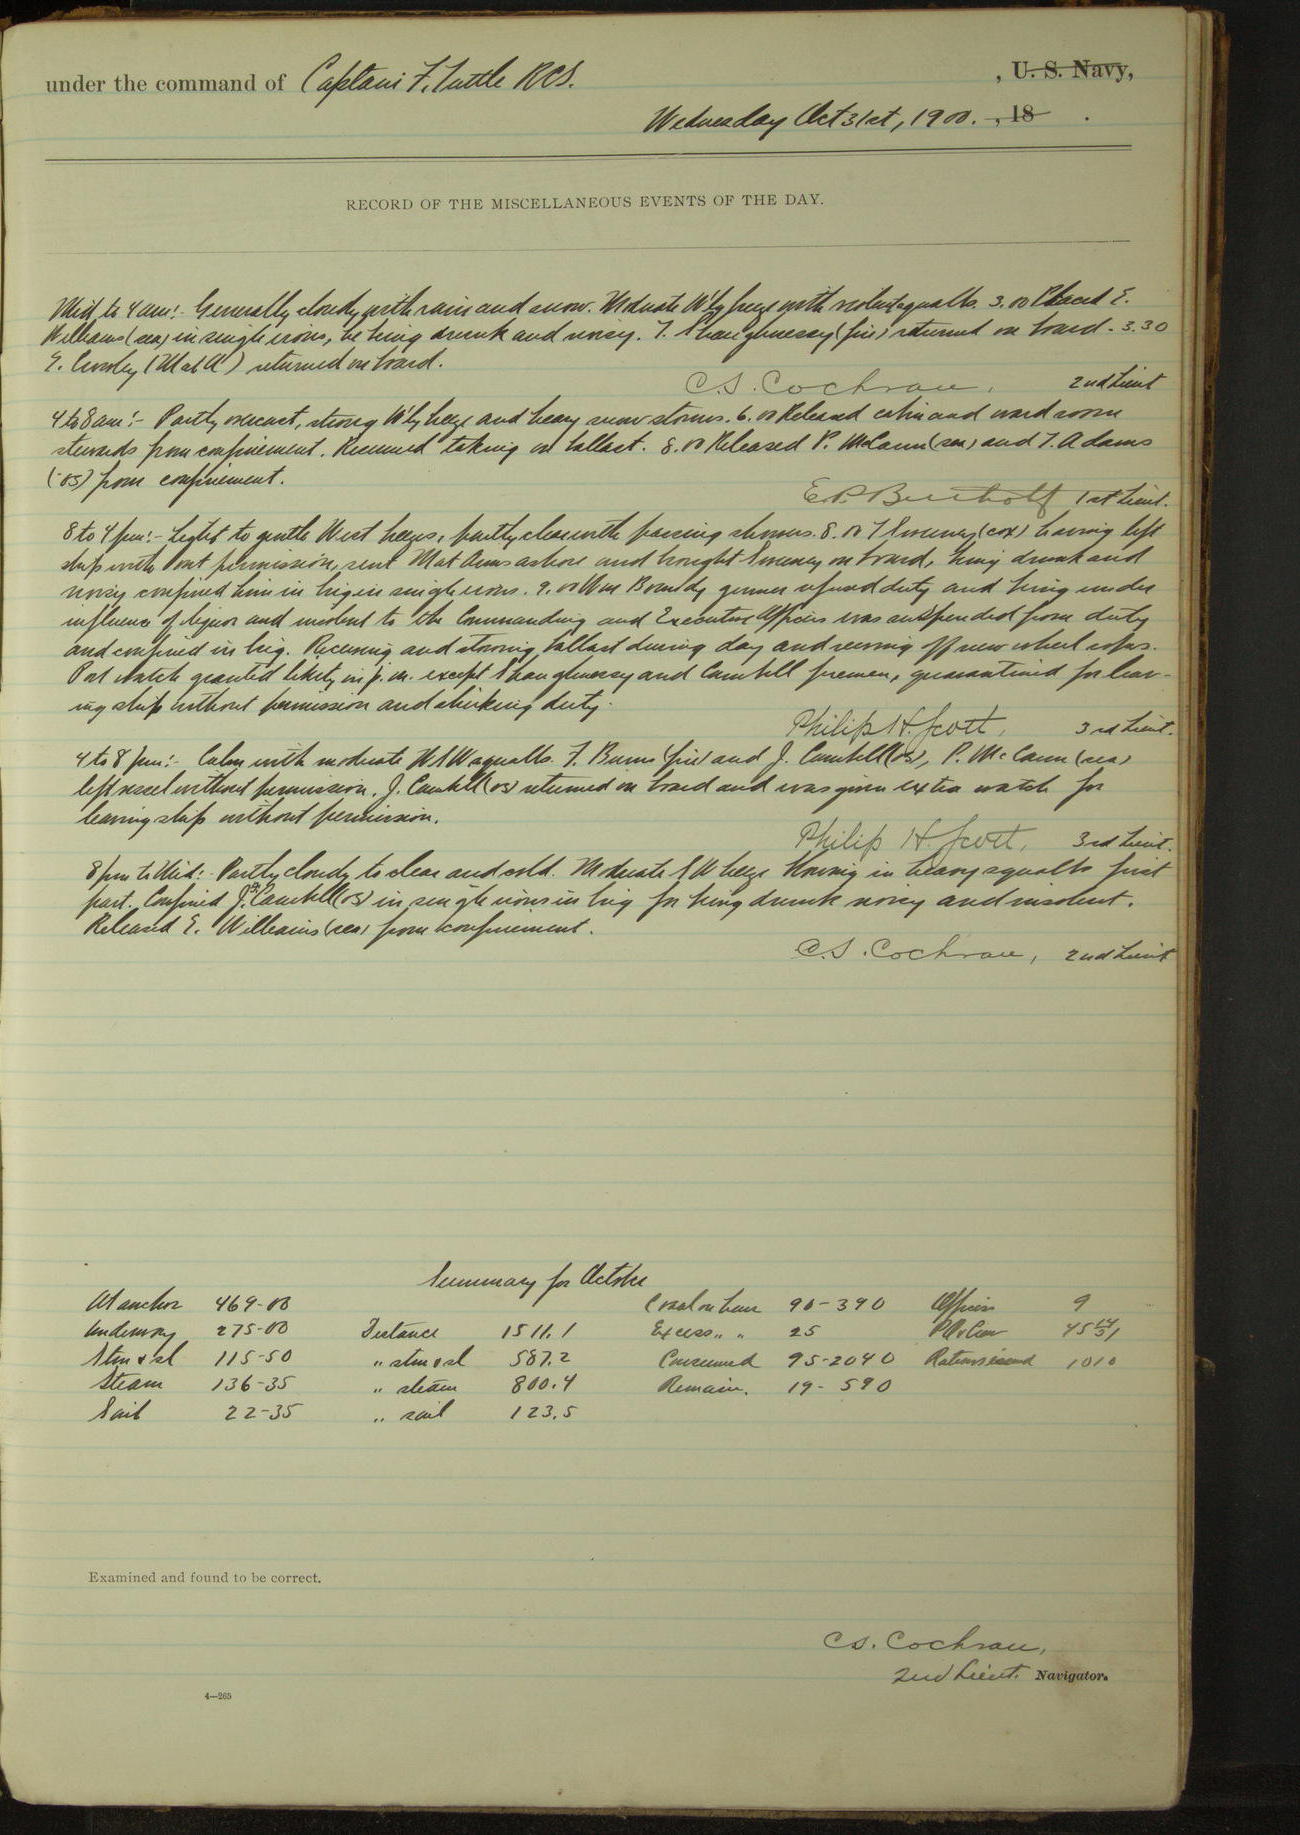 under the command of Captain F. Tuttle RCS. , U. S. Navy,
Wednesday Oct 31st, 1900. , 18 .
RECORD OF THE MISCELLANEOUS EVENTS OF THE DAY.
Mid to 4 am:- Generally cloudy with rain and snow. Moderate W'ly breeze with violent squalls. 3.00 Placed E.
Williams (sea) in single irons, he being drunk and noisy. T. Shaughnessy (fire) returned on board. 3.30
E. Crosley (M at A) returned on board.
C.S. Cochran, 2nd Lieut
4 to 8 am:- Partly overcast, strong W'ly breeze and heavy snow storms. 6.00 Released cabin and ward room
stewards from confinement. Resumed taking in ballast. 8.00 Released P. McCann (sea) and T. Adams
(os) from confinement.
E.P. Bertholf 1st Lieut.
8 to 4 pm:- Light to gentle West breeze, partly clear with passing showers. 8.00 T Sweeney (cox) having left
ship with out permission, sent M at Arms ashore and brought Sweeney on board, being drunk and
noisy confined him in brig in single irons. 9.00 Wm gunner refused duty and being under
influence of liquor and insolent to the Commanding and Executive Officers was suspended from duty
and confined in brig. Receiving and stowing ballast during day and reeving off new wheel ropes.
Port watch granted liberty in p.m. except Shaughnessy and Cambell firemen, quarantined for leav-
ing ship without permission and shirking duty.
Philip H. Scott, 3rd Lieut.
4 to 8 pm:- Calm with moderate squalls. F. Burns (fire) and J. Cambell (os), P. McCann (sea)
left vessel without permission. J. Cambell (os) returned on board and was given extra watch for
leaving ship without permission.
Philip H. Scott, 3rd Lieut.
8 pm to Mid:- Partly cloudy to clear and cold. Moderate SW breeze blowing in heavy squalls first
part. Confined J. Cambell (os) in single irons in brig for being drunk noisy and insolent.
Released E. Williams (sea) from confinement.
C.S. Cochran, 2nd Lieut
Summary for October
At anchor 469-00 Coal on hand 90-390 Officers 9
Underway 275-00 Distance 1511.1 Excess " " 25 P.O. & Crew 45 14/31
Stm & sl 115-50 " stm & sl 587.2 Consumed 95-2040 Rations issued 1010
Steam 136-35 " steam 800.4 Remain. 19-590
Sail 22-35 " sail 123.5
Examined and found to be correct.
C.S. Cochran,
2nd Lieut. Navigator.
4—265